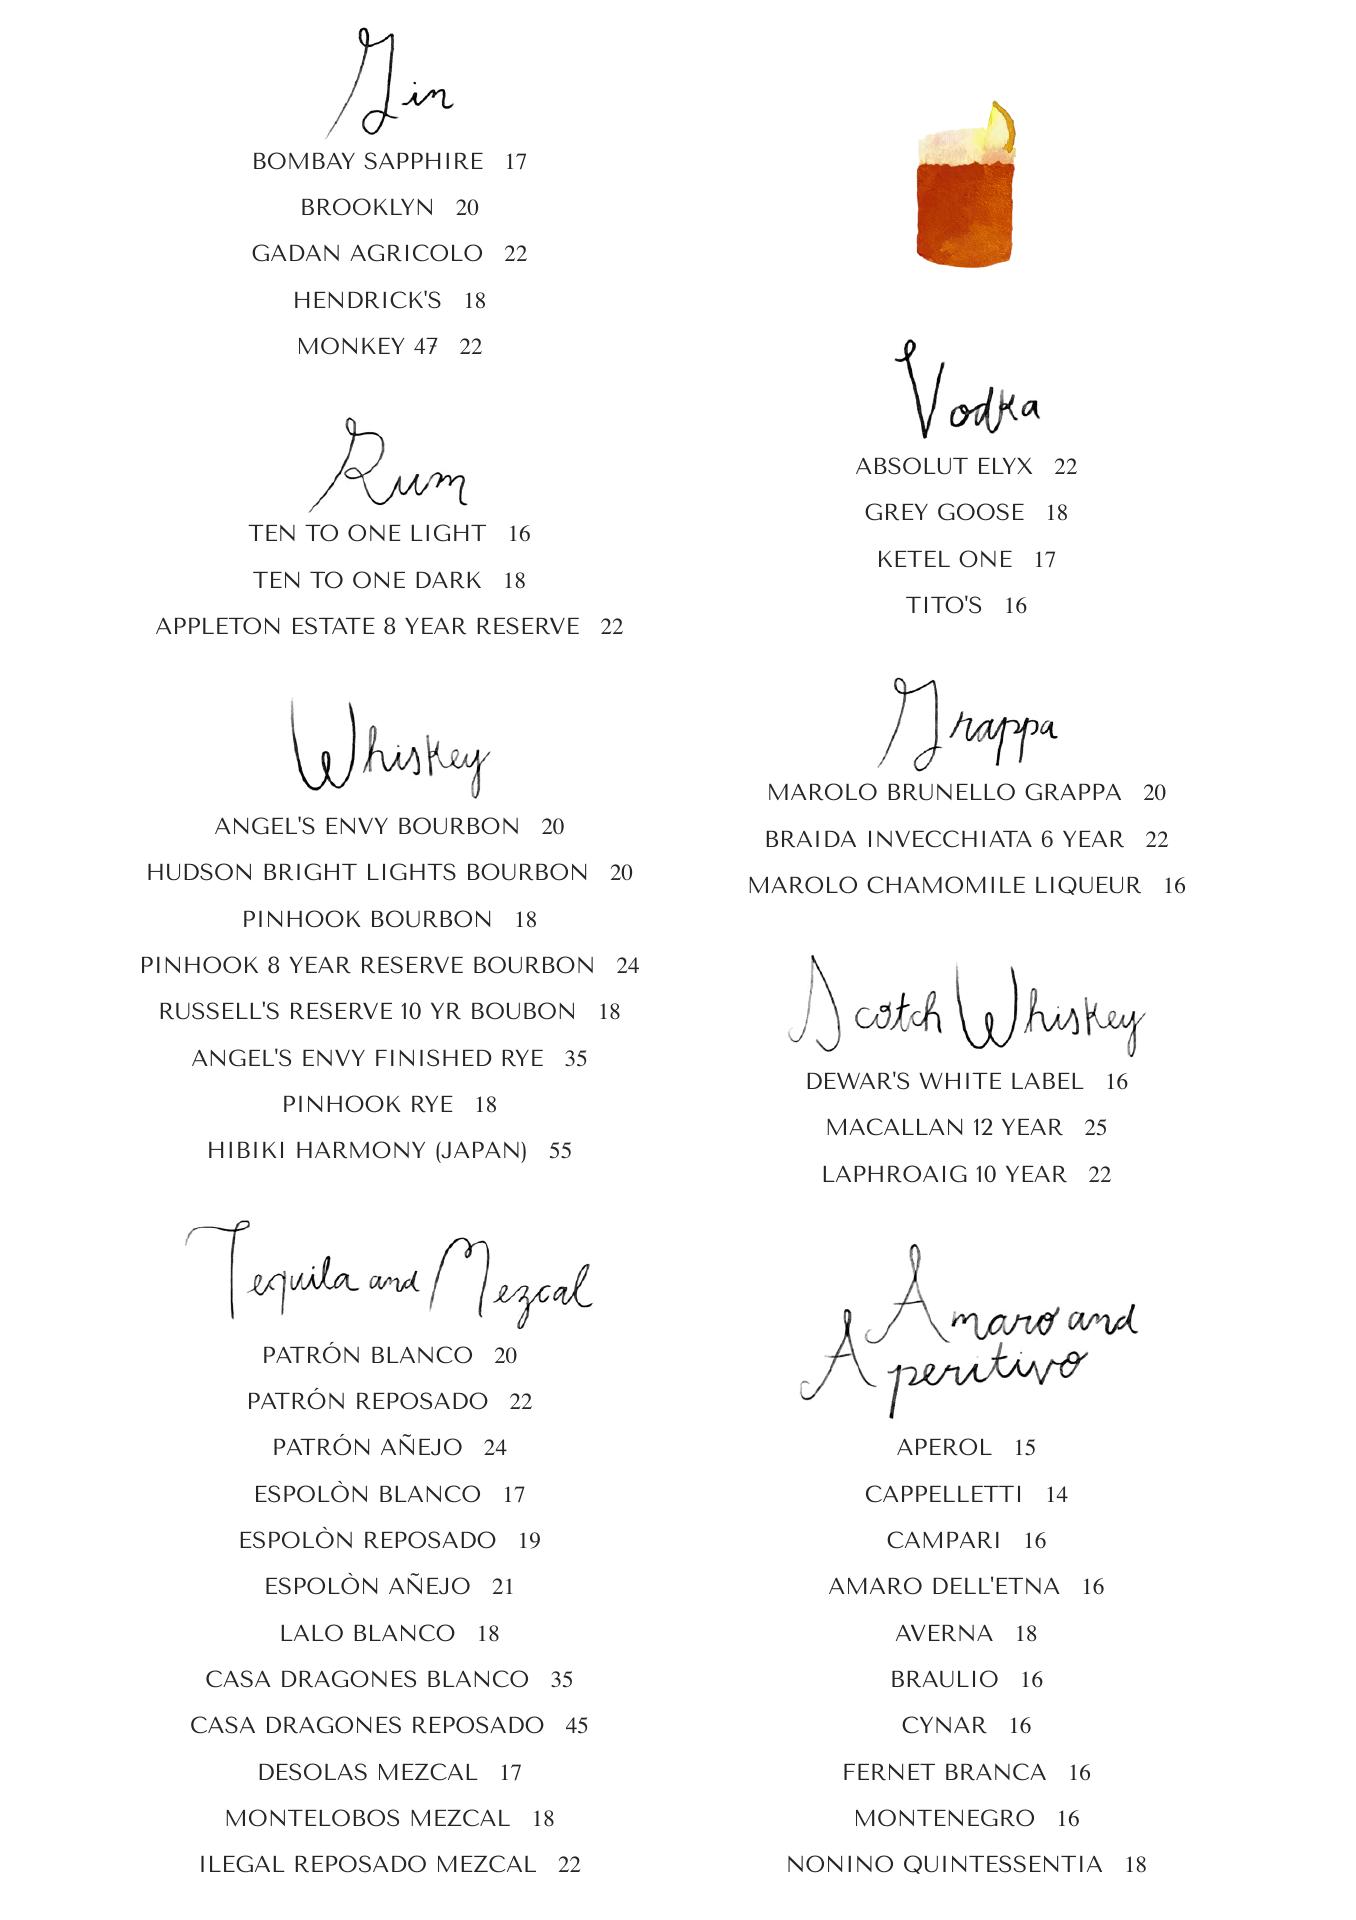 Gin
BOMBAY SAPPHIRE 17
BROOKLYN 20
GADAN AGRICOLO 22
HENDRICK'S 18
MONKEY 47 22
Rum
TEN TO ONE LIGHT 16
TEN TO ONE DARK 18
APPLETON ESTATE 8 YEAR RESERVE 22
Whiskey
ANGEL'S ENVY BOURBON 20
HUDSON BRIGHT LIGHTS BOURBON 20
PINHOOK BOURBON 18
PINHOOK 8 YEAR RESERVE BOURBON 24
RUSSELL'S RESERVE 10 YR BOUBON 18
ANGEL'S ENVY FINISHED RYE 35
PINHOOK RYE 18
HIBIKI HARMONY (JAPAN) 55
Tequila and Mezcal
PATRÓN BLANCO 20
PATRÓN REPOSADO 22
PATRÓN AÑEJO 24
ESPOLÒN BLANCO 17
ESPOLÒN REPOSADO 19
ESPOLÒN AÑEJO 21
LALO BLANCO 18
CASA DRAGONES BLANCO 35
CASA DRAGONES REPOSADO 45
DESOLAS MEZCAL 17
MONTELOBOS MEZCAL 18
ILEGAL REPOSADO MEZCAL 22
Vodka
ABSOLUT ELYX 22
GREY GOOSE 18
KETEL ONE 17
TITO'S 16
Grappa
MAROLO BRUNELLO GRAPPA 20
BRAIDA INVECCHIATA 6 YEAR 22
MAROLO CHAMOMILE LIQUEUR 16
Scotch Whiskey
DEWAR'S WHITE LABEL 16
MACALLAN 12 YEAR 25
LAPHROAIG 10 YEAR 22
Amaro and
Aperitivo
APEROL 15
CAPPELLETTI 14
CAMPARI 16
AMARO DELL'ETNA 16
AVERNA 18
BRAULIO 16
CYNAR 16
FERNET BRANCA 16
MONTENEGRO 16
NONINO QUINTESSENTIA 18